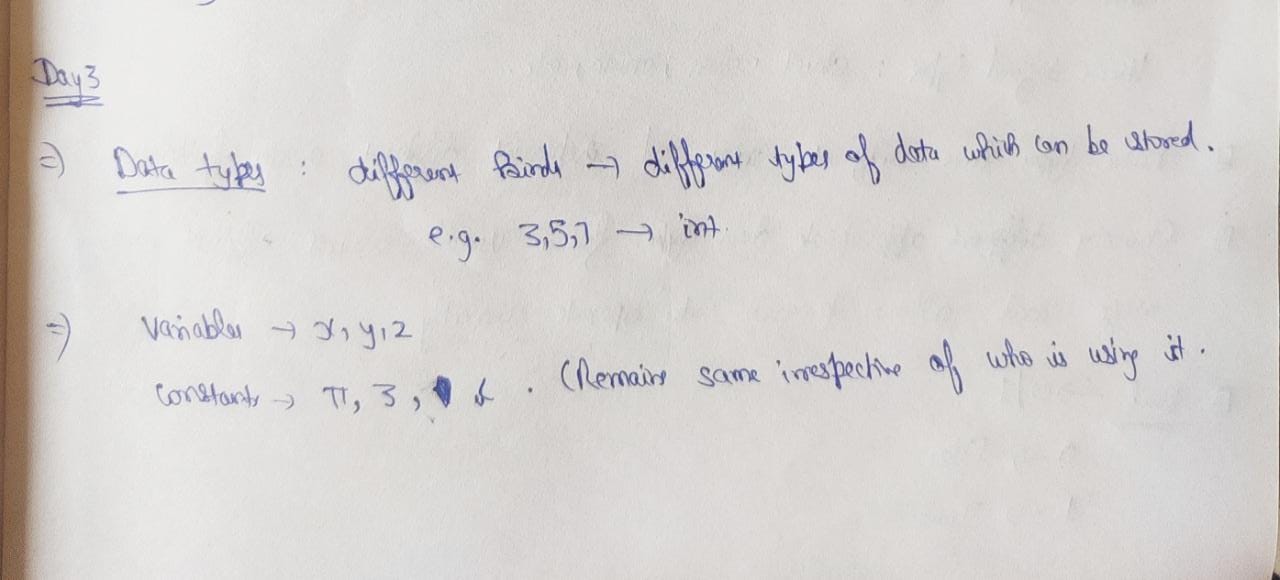 Day 3
=) Data types : different Birds → different types of data which can be stored.
e.g. 3,5,7 → int.
=) Variables → x, y, z
Constants → π, 3, . (Remains same irrespective of who is using it.